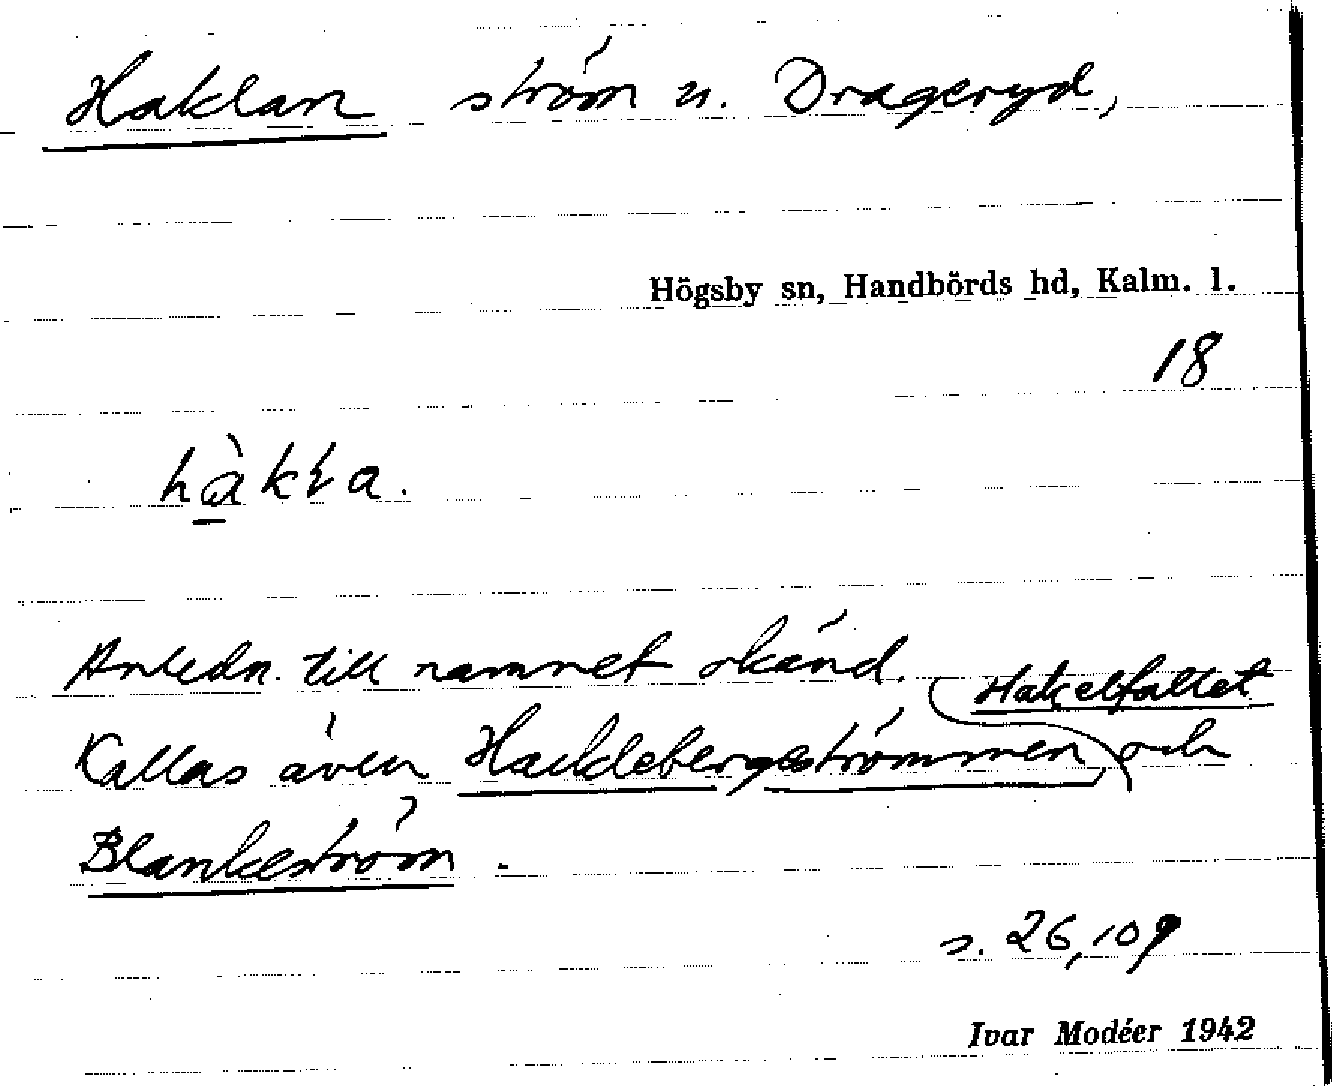 Haklan ström u. Drageryd,
Högsby sn, Handbörds hd, Kalm. l.
18
Anledn. till namnet okänd.
Hakelfallet
Kallas även Hacklebergsströmmen, och
Blankeström.
s. 26, 109
Ivar Modéer 1942